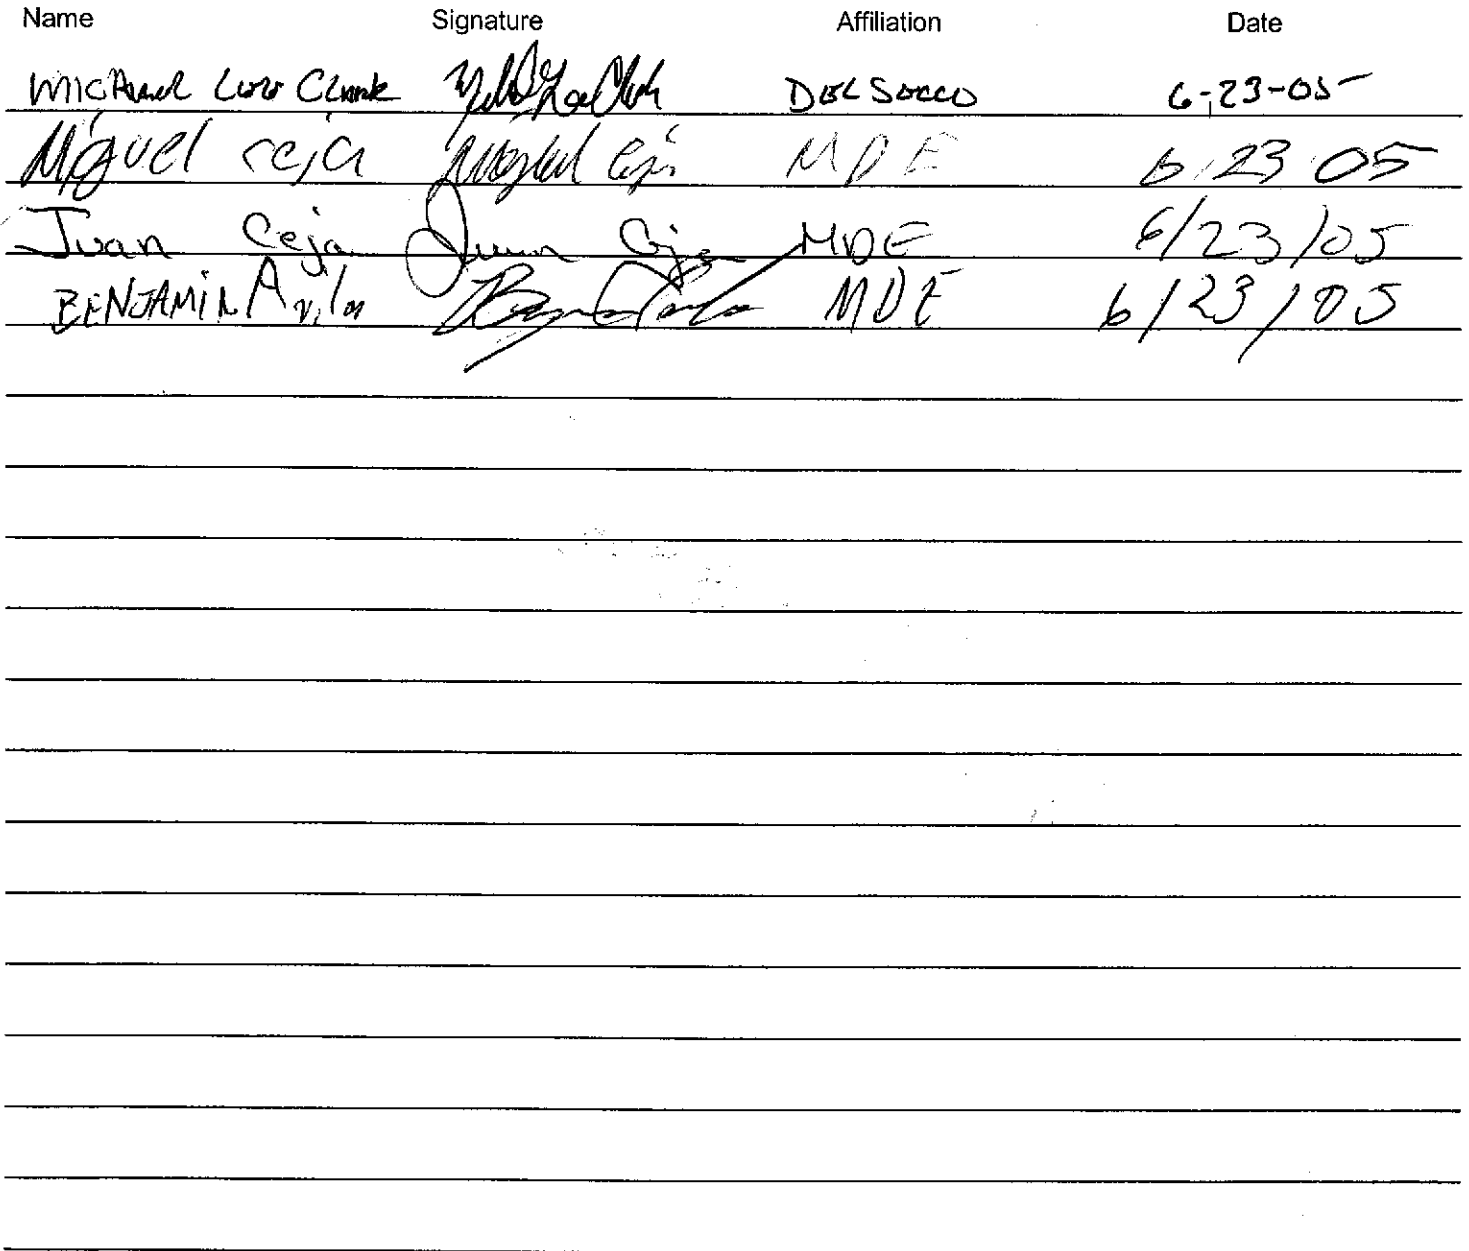 Name Signature Affiliation Date
Michael Lee Clark Michael Lee Clark DEL SECCO 6-23-05
Miguel ceja Miguel Ceja MDE 6/23/05
Juan Ceja Juan Ceja MDE 6/23/05
BENJAMIN Avila MDE 6/23/05